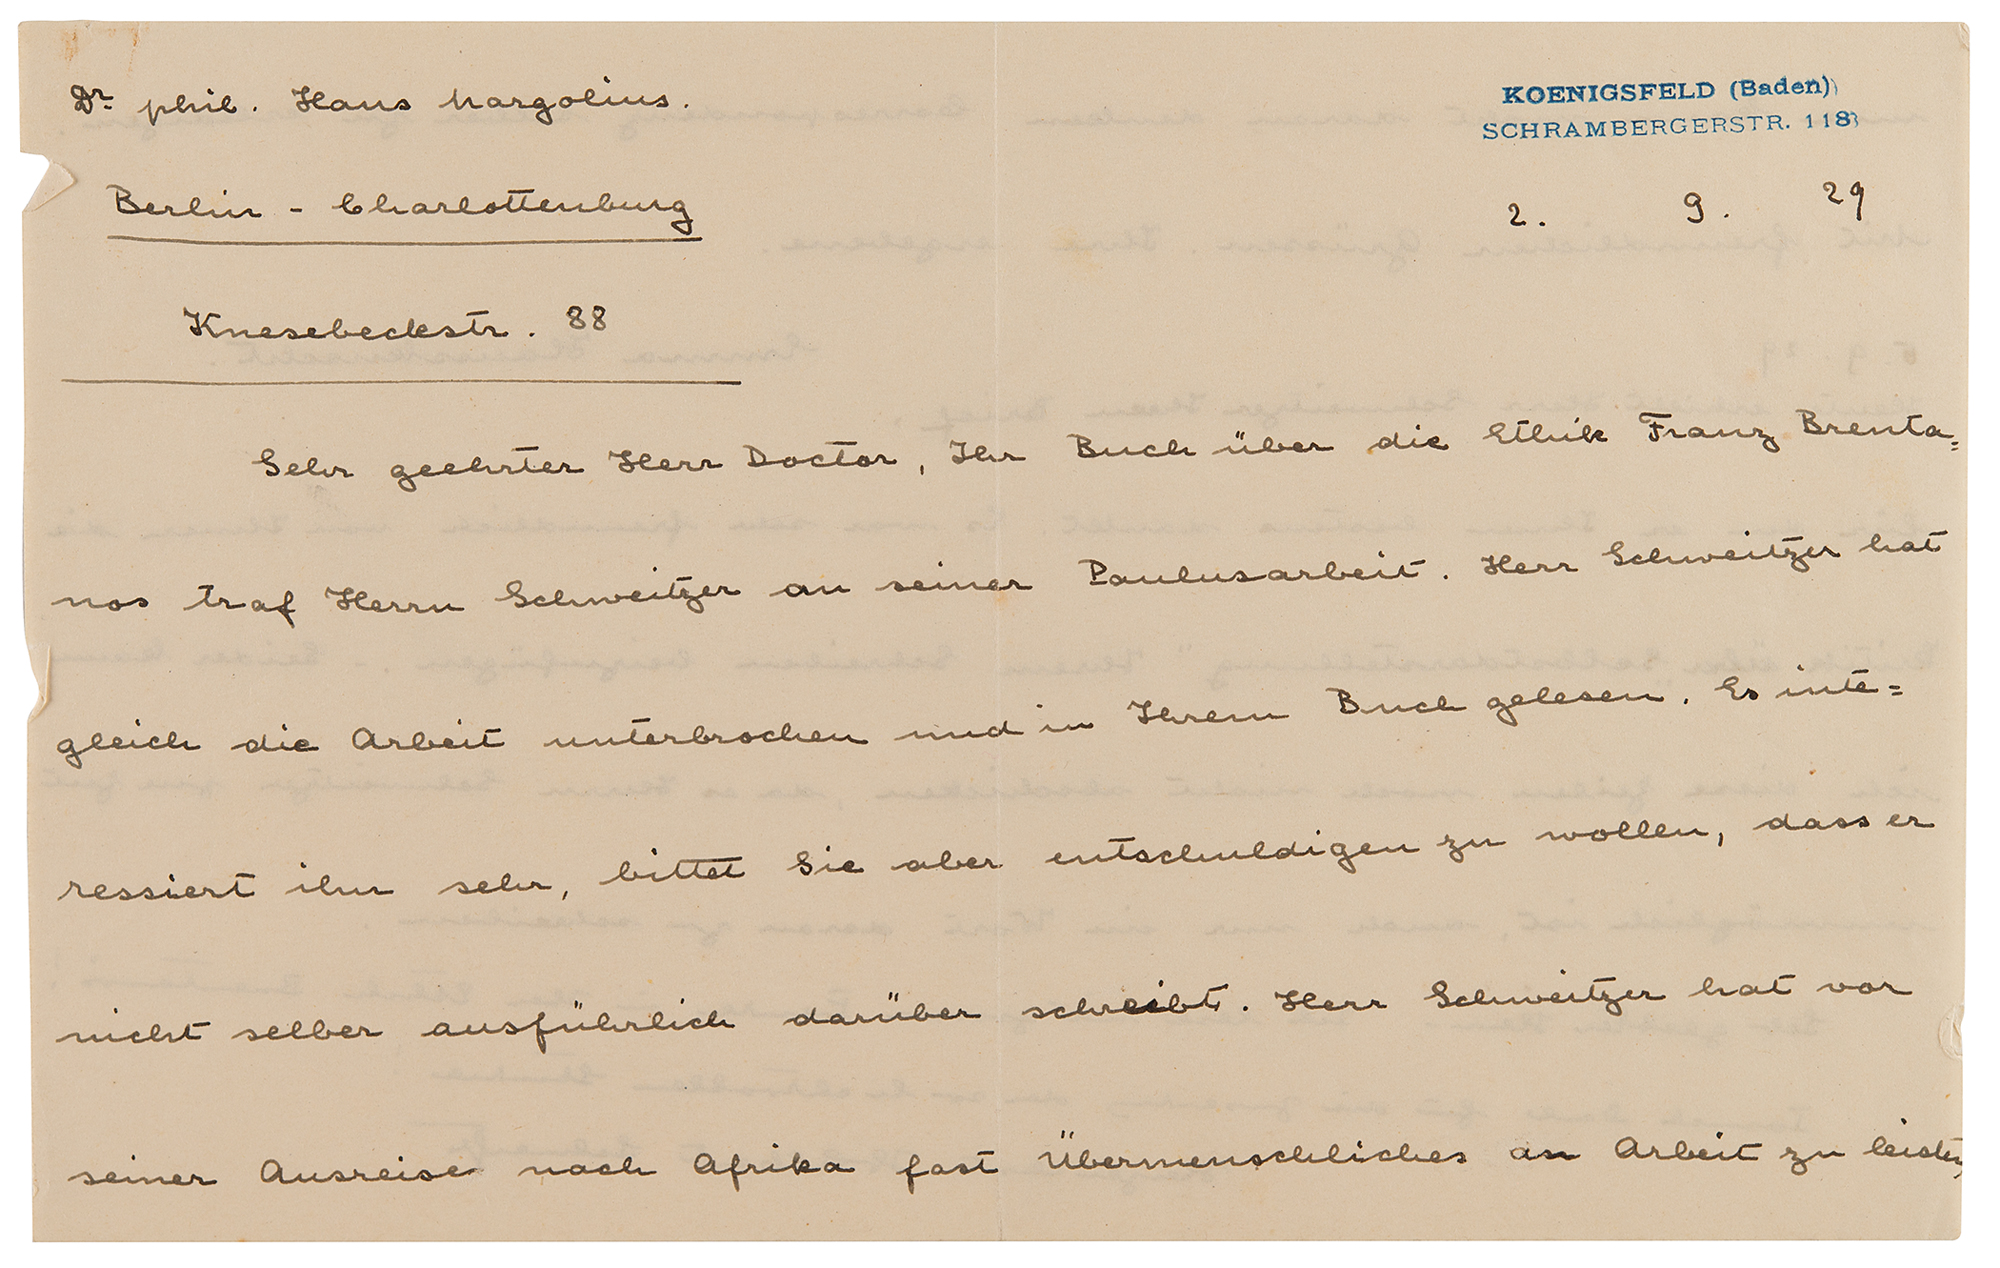 Dr phil. Hans Margolius.
KOENIGSFELD (Baden)
SCHRAMBERGERSTR. 118
Berlin - Charlottenburg
2. 9. 29
Knesebeckstr. 88
Sehr geehrter Herr Doctor, Ihr Buch über die Ethik Franz Brenta=
nos traf Herrn Schweitzer an seiner Paulusarbeit. Herr Schweitzer hat
gleich die Arbeit unterbrochen und in Ihrem Buch gelesen. Es inte=
ressiert ihn sehr, bittet Sie aber entschuldigen zu wollen, dass er
nicht selber ausführlich darüber schreibt. Herr Schweitzer hat vor
seiner Ausreise nach Afrika fast Übermenschliches an Arbeit zu leisten,